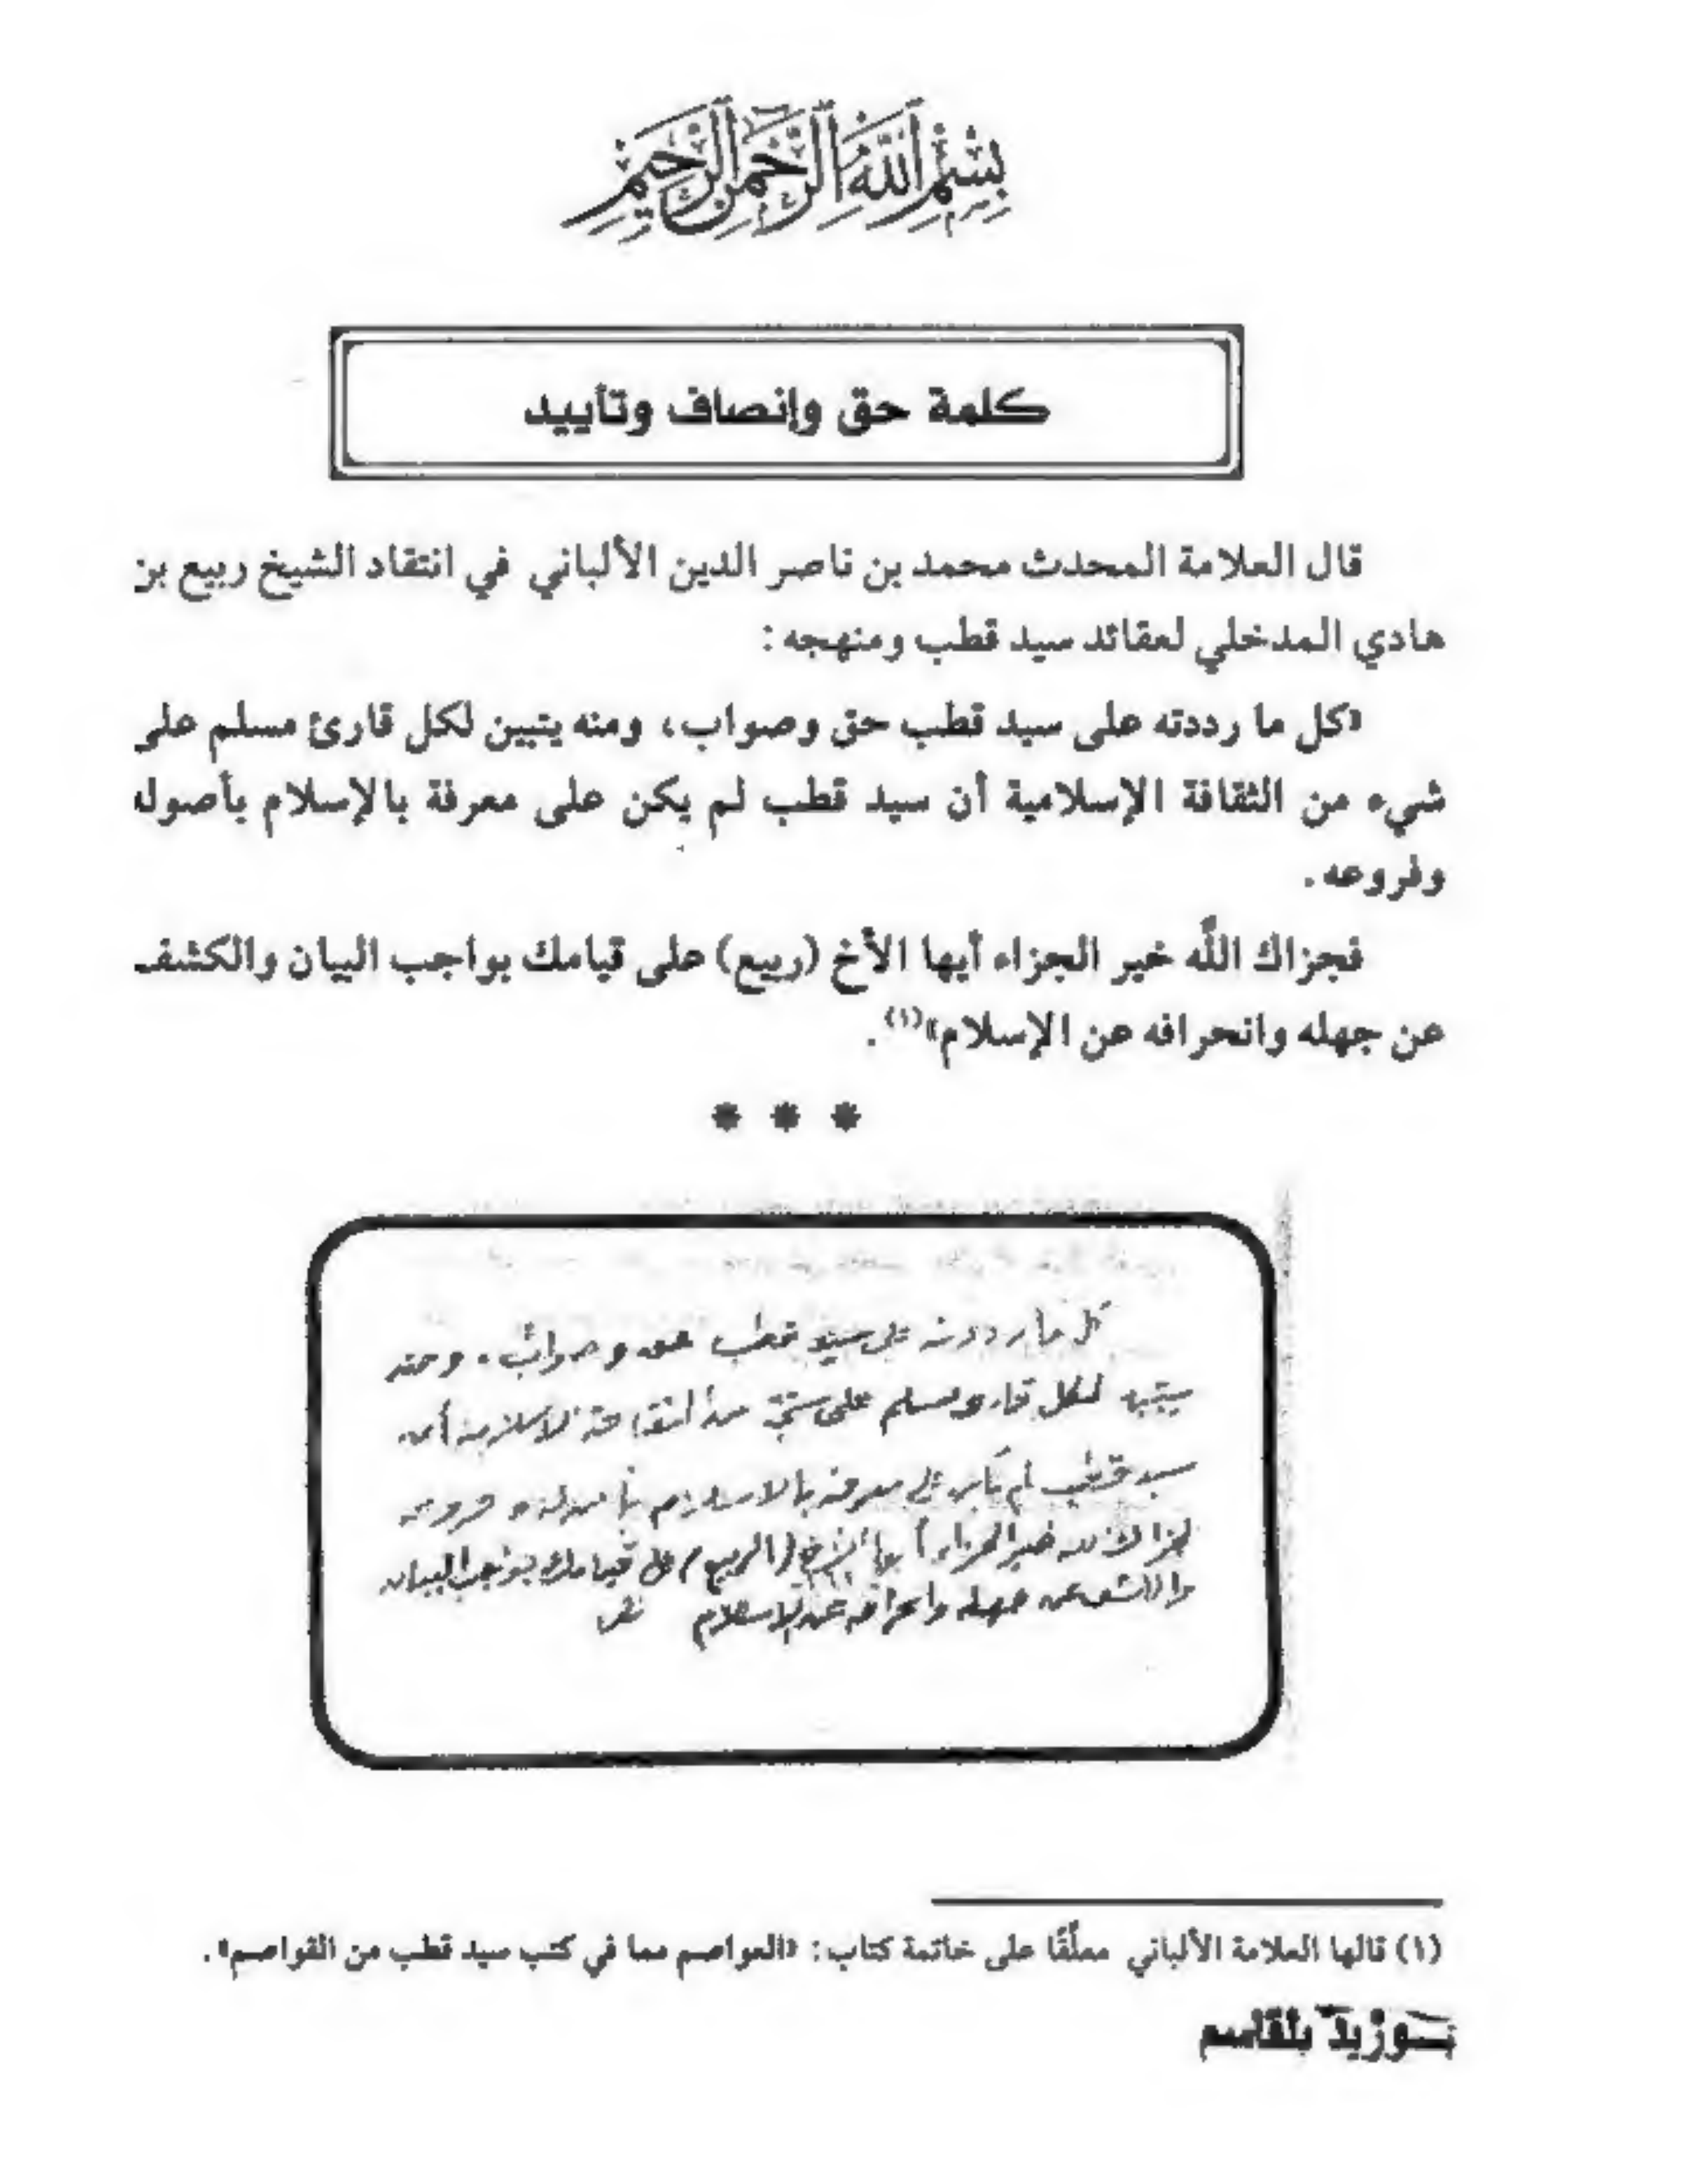 بِسْمِ اللَّهِ الرَّحْمَنِ الرَّحِيمِ
كلمة حق وإنصاف وتأييد
قال العلامة المحدث محمد بن ناصر الدين الألباني في انتقاد الشيخ ربيع بن
هادي المدخلي لعقائد سيد قطب ومنهجه :
«كل ما رددته على سيد قطب حق وصواب، ومنه يتبين لكل قارئ مسلم على
شيء من الثقافة الإسلامية أن سيد قطب لم يكن على معرفة بالإسلام بأصوله
وفروعه .
فجزاك اللَّه خير الجزاء أيها الأخ (ربيع) على قيامك بواجب البيان والكشف
عن جهله وانحرافه عن الإسلام»(١) .
* * *
كل ما رددته على سيد قطب حق وصواب ، ومنه
يتبين لكل قارئ مسلم على شيء من الثقافة الإسلامية أن
سيد قطب لم يكن على معرفة بالإسلام بأصوله وفروعه
فجزاك الله خير الجزاء أيها الأخ (الربيع) على قيامك بواجب البيان
والكشف عن جهله وانحرافه عن الإسلام
(١) قالها العلامة الألباني معلِّقًا على خاتمة كتاب : «العواصم مما في كتب سيد قطب من القواصم» .
بلقاسم